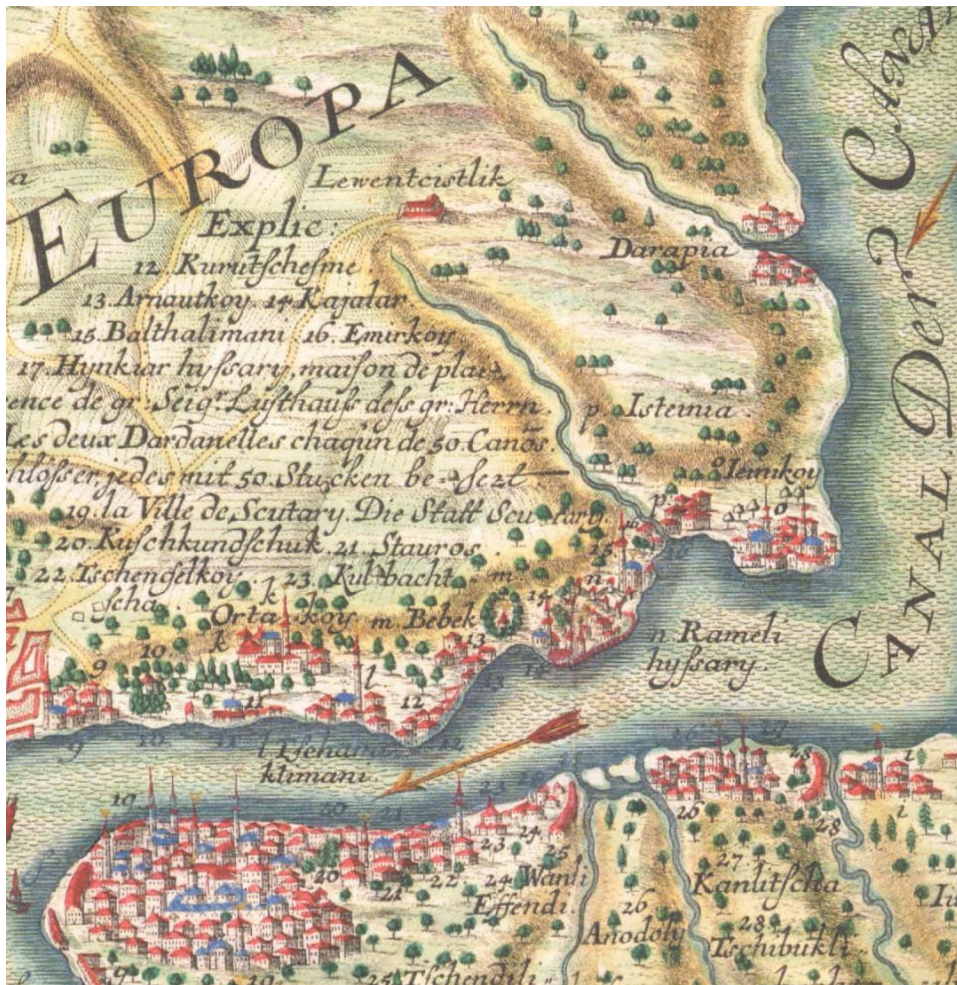 EUROPA
CANAL DER
Lewentcistlik
Explic:
12. Kurutschesme.
13. Arnautkoy. 14. Kajalar.
15. Balthalimani 16. Emirkoy
17. Hynkiar hyssary, maison de plai=
ence de gr. Seigr. Lusthauss dess gr: Herrn.
Les deux Dardanelles chaqun de 50. Canos.
chlösser, jedes mit 50. Stucken be=sezt
19. la Ville de Scutary. Die Statt Scutary.
20. Kuschkundschuk. 21. Stauros.
22. Tschengelkoy. 23. Kullbacht
scha.
Darapia
p. Isteinia
o Jenikoy
k
Orta koy m. Bebek
n. Rameli
hyssary.
9 10. 11 12
l Tschara
klimani.
19 20 21 22 23 24 25
24. Wanli
Effendi.
26
Anodoly
27
Kanlitscha
28
Tschibukli
25. Tschendili